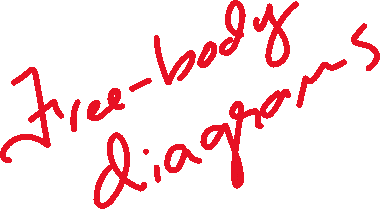 Free-body
diagrams